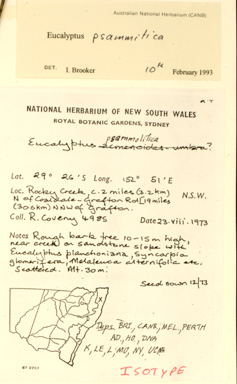 Australian National Herbarium (CANB)
Eucalyptus psammitica
DET: I. Brooker 10th February 1993
NATIONAL HERBARIUM OF NEW SOUTH WALES
ROYAL BOTANIC GARDENS, SYDNEY
psammitica
Eucalyptus acmenoides - umbra?
Lat. 29° 26' S Long. 152° 51' E
Loc. Rocky Creek, c. 2 miles (3.2km) N.S.W.
N of Coaldale - Grafton Rd (19 miles
(30.6km) NNW of Grafton.
Coll. R. Coveny 4985 Date 23.viii.1973
Notes Rough bark tree 10-15 m high,
near creek on sandstone slope with
Eucalyptus planchoniana, Syncarpia
glomulifera, Melaleuca alternifolia etc.
Scattered. Alt. 30m.
Seed sown 12/73
Dups. BRI, CANB, MEL, PERTH
AD, HO, DNA
K, LE, L, MO, NY,
ISOTYPE